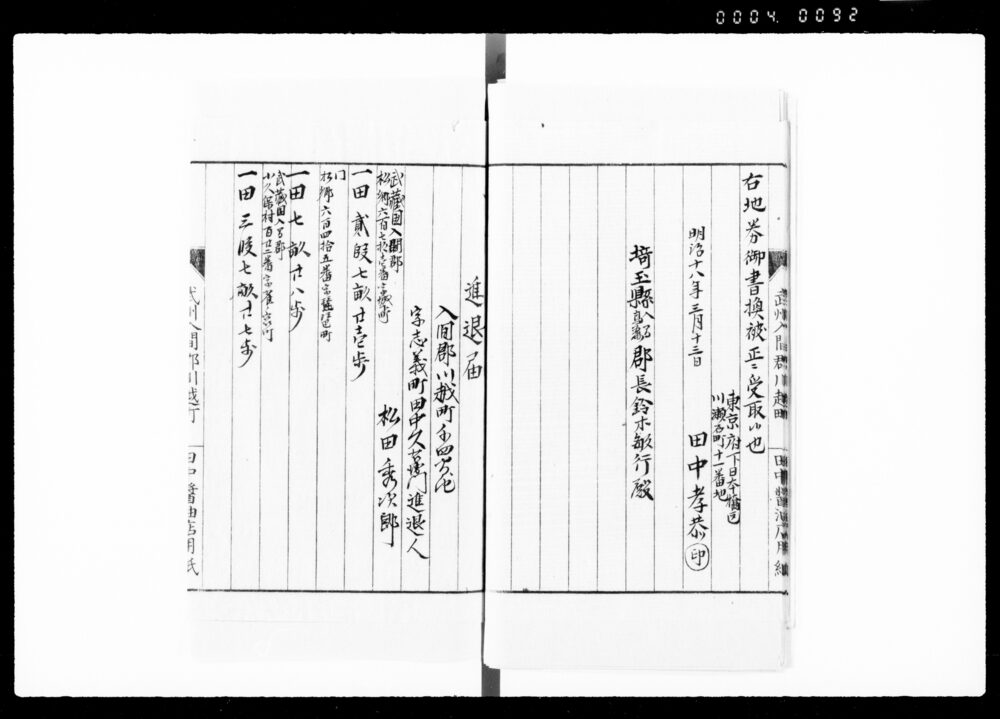 0004 0092
武州入間郡川越町 田中醤油店用紙
右地券御書換被正ニ受取候也
明治十八年三月十三日
東京府下日本橋区
川瀬石町十一番地
田中孝恭 印
埼玉縣入間高麗郡長鈴木敏行殿
進退届
入間郡川越町
字志義町田中久右衛門進退人
松田秀次郎
武蔵国入間郡
松郷六百七拾壱番字城町
一田貳段七畝廿壱歩
同
松郷六百四拾五番字
一田七畝廿八歩
武蔵国入間郡
小久保村百廿二番字
一田三段七畝廿七歩
武州入間郡川越町 田中醤油店用紙